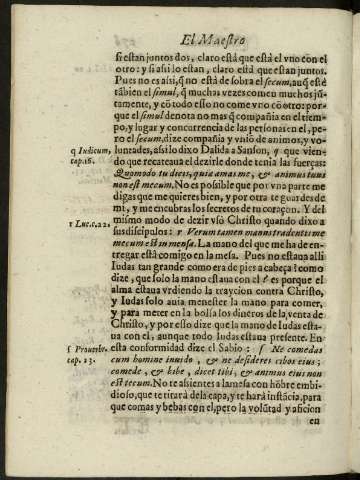 El Maestro
si estan juntos dos, claro està que està el vno con el
otro: y si assi lo estan, claro està que estan juntos.
Pues no es assi, q̃ no està de sobra el secum, auq̃ estè
tãbien el simul, q̃ muchas vezes comen muchos jũ-
tamente, y cõ todo esso no come vno cõ otro: por-
que el simul denota no mas q̃ compañia en el tiem-
po, y lugar y concurrencia de las personas en el, pe-
ro el secum, dize compañia y vniõ de animos, y vo-
luntades, assi lo dixo Dalida a Sanson, q que vien-
do que recateaua el dezirle donde tenia las fuerças:
Quomodo tu dicis, quia amas me, & animus tuus
non est mecum. No es possible que por vna parte me
digas que me quieres bien, y por otra te guardes de
mi, y me encubras los secretos de tu coraçon. Y del
mismo modo de dezir vsò Christo quando dixo a
sus discipulos: r Verum tamen manus tradentis me
mecum est in mensa. La mano del que me ha de en-
tregar està comigo en la mesa. Pues no estaua alli
Iudas tan grande como era de pies a cabeça? como
dize, que solo la mano estaua con el? es porque el
alma estaua vrdiendo la trayciõn contra Christo,
y Iudas solo auia menester la mano para comer,
y para meter en la bolsa los dineros de la venta de
Christo, y por esso dize que la mano de Iudas esta-
ua con el, aunque todo Iudas estaua presente. En
esta conformidad dize el Sabio: s Ne comedas
cum homine inuido, & ne desideres cibos eius;
comede, & bibe, dicet tibi, & animus eius non
est tecum. No te assientes a la mesa con hõbre embi-
dioso, que te tirarà de la capa, y te harà instãcia, para
que comas y bebas con el, pero la volũtad y aficion
en
q Iudicum,
cap. 16.
r Luc. c. 22.
s Prouerb.
cap. 23.